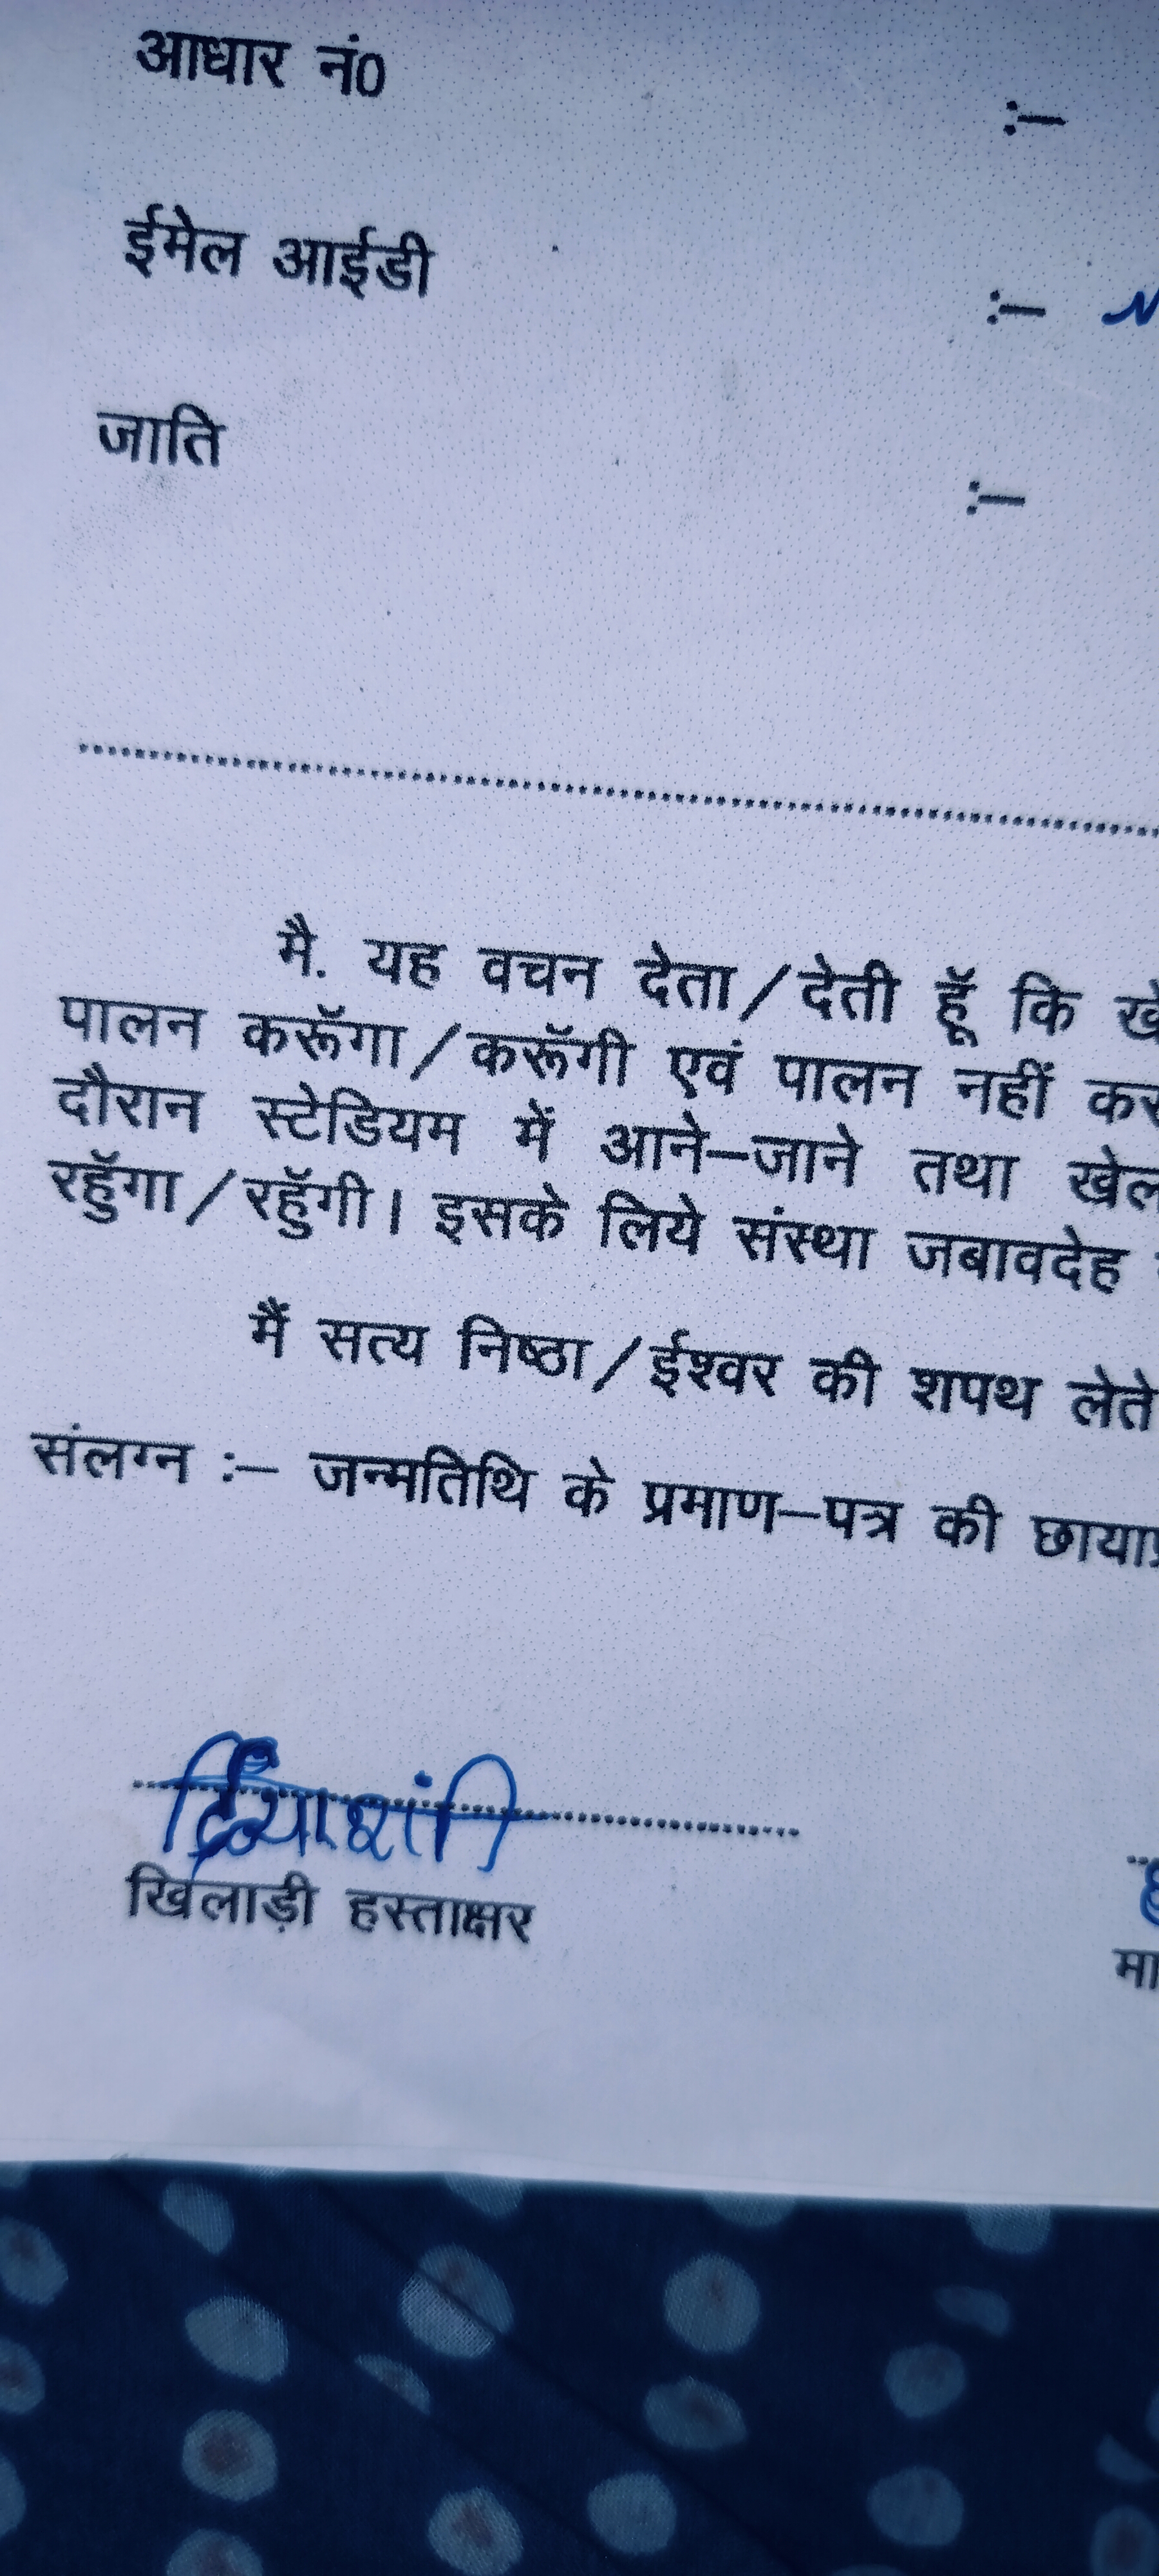 आधार नं0 :–
ईमेल आईडी :–
जाति :–
मै. यह वचन देता/देती हूॅ कि
पालन करूॅगा/करूॅगी एवं पालन नहीं
दौरान स्टेडियम में आने–जाने तथा खेल
रहुॅगा/रहुॅगी। इसके लिये संस्था जबावदेह
मैं सत्य निष्ठा/ईश्वर की शपथ लेते
संलग्न :– जन्मतिथि के प्रमाण–पत्र की
खिलाड़ी हस्ताक्षर